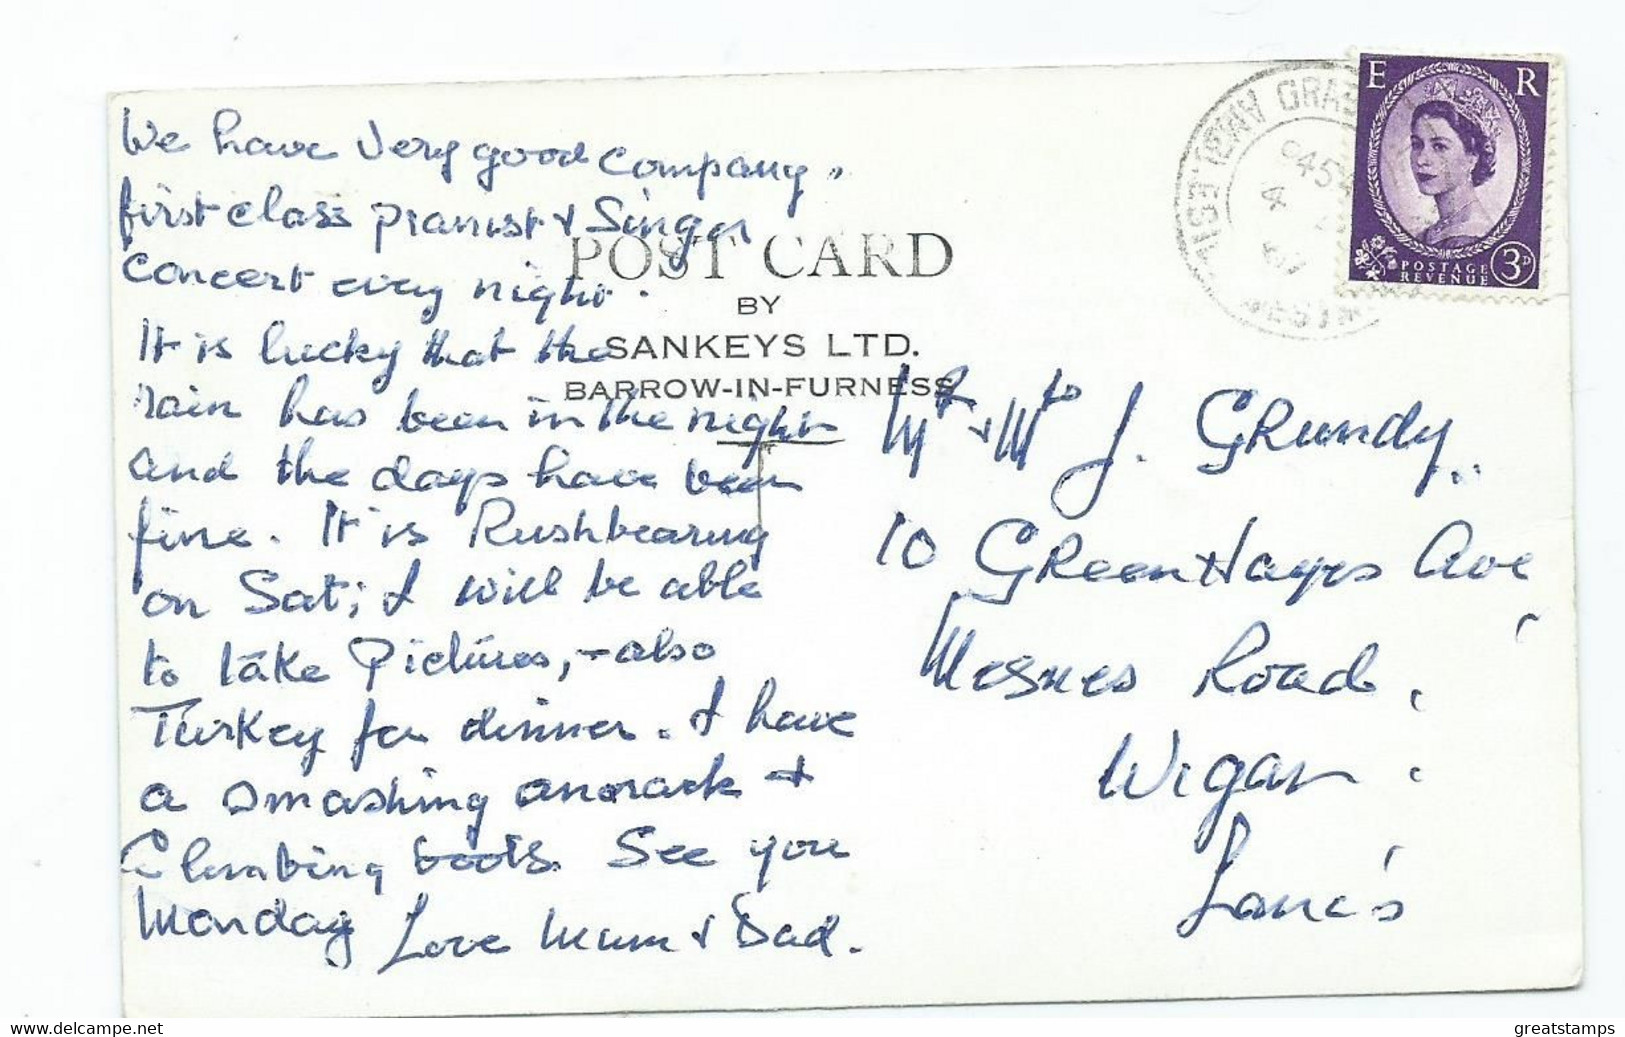 We have very good company,
first class pianist & Singer
concert every night.
It is lucky that the
rain has been in the night
and the days have been
fine. It is Rushbearing
on Sat; I will be able
to take Pictures, - also
Turkey for dinner. I have
a smashing anorack +
Climbing boots. See you
Monday Love Mum & Dad.
POST CARD
BY
SANKEYS LTD.
BARROW-IN-FURNESS
E R
POSTAGE
REVENUE
3D
945
Mr & Mrs J. Grundy,
10 GreenHayes Ave
Mesnes Road,
Wigan
Lanc's
greatstamps
www.delcampe.net